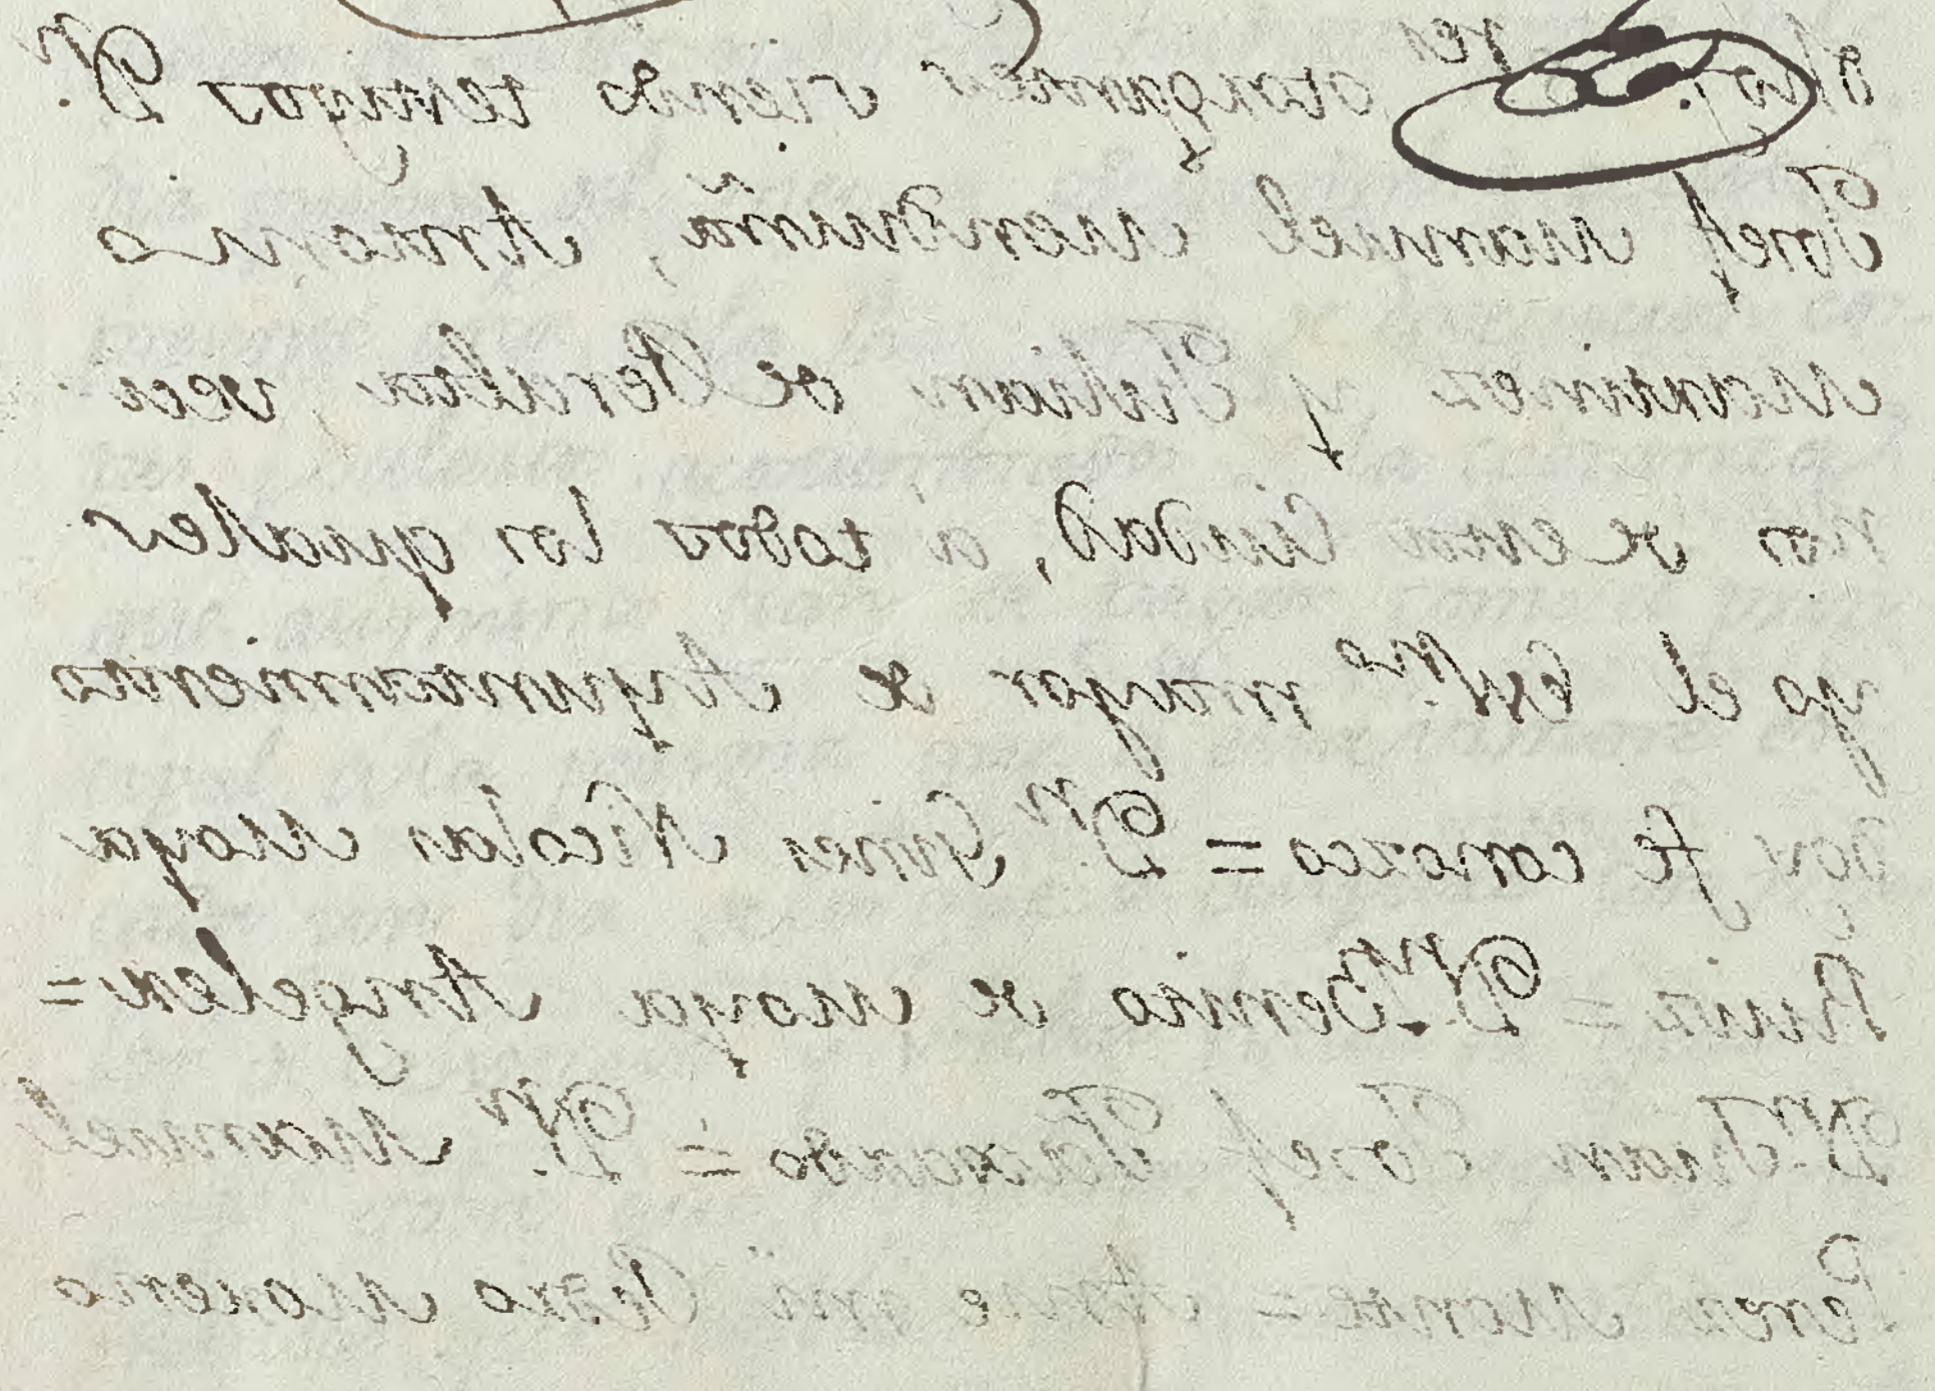 otorgantes siendo testigos D.n
Josef Manuel Menduiña, Antonio
Martinez y Julian de Cerallta veci-
nos de esta Ciudad, á todos los quales
yo el Ess.no mayor de Ayuntamiento
doy fe conozco = D.n Gines Nicolas Moya
Ruiz = D.n Benito de Moya Angeler =
D.n Juan Josef Tacando = D.n Manuel
Perez Monte = Ante mi Charo Montero